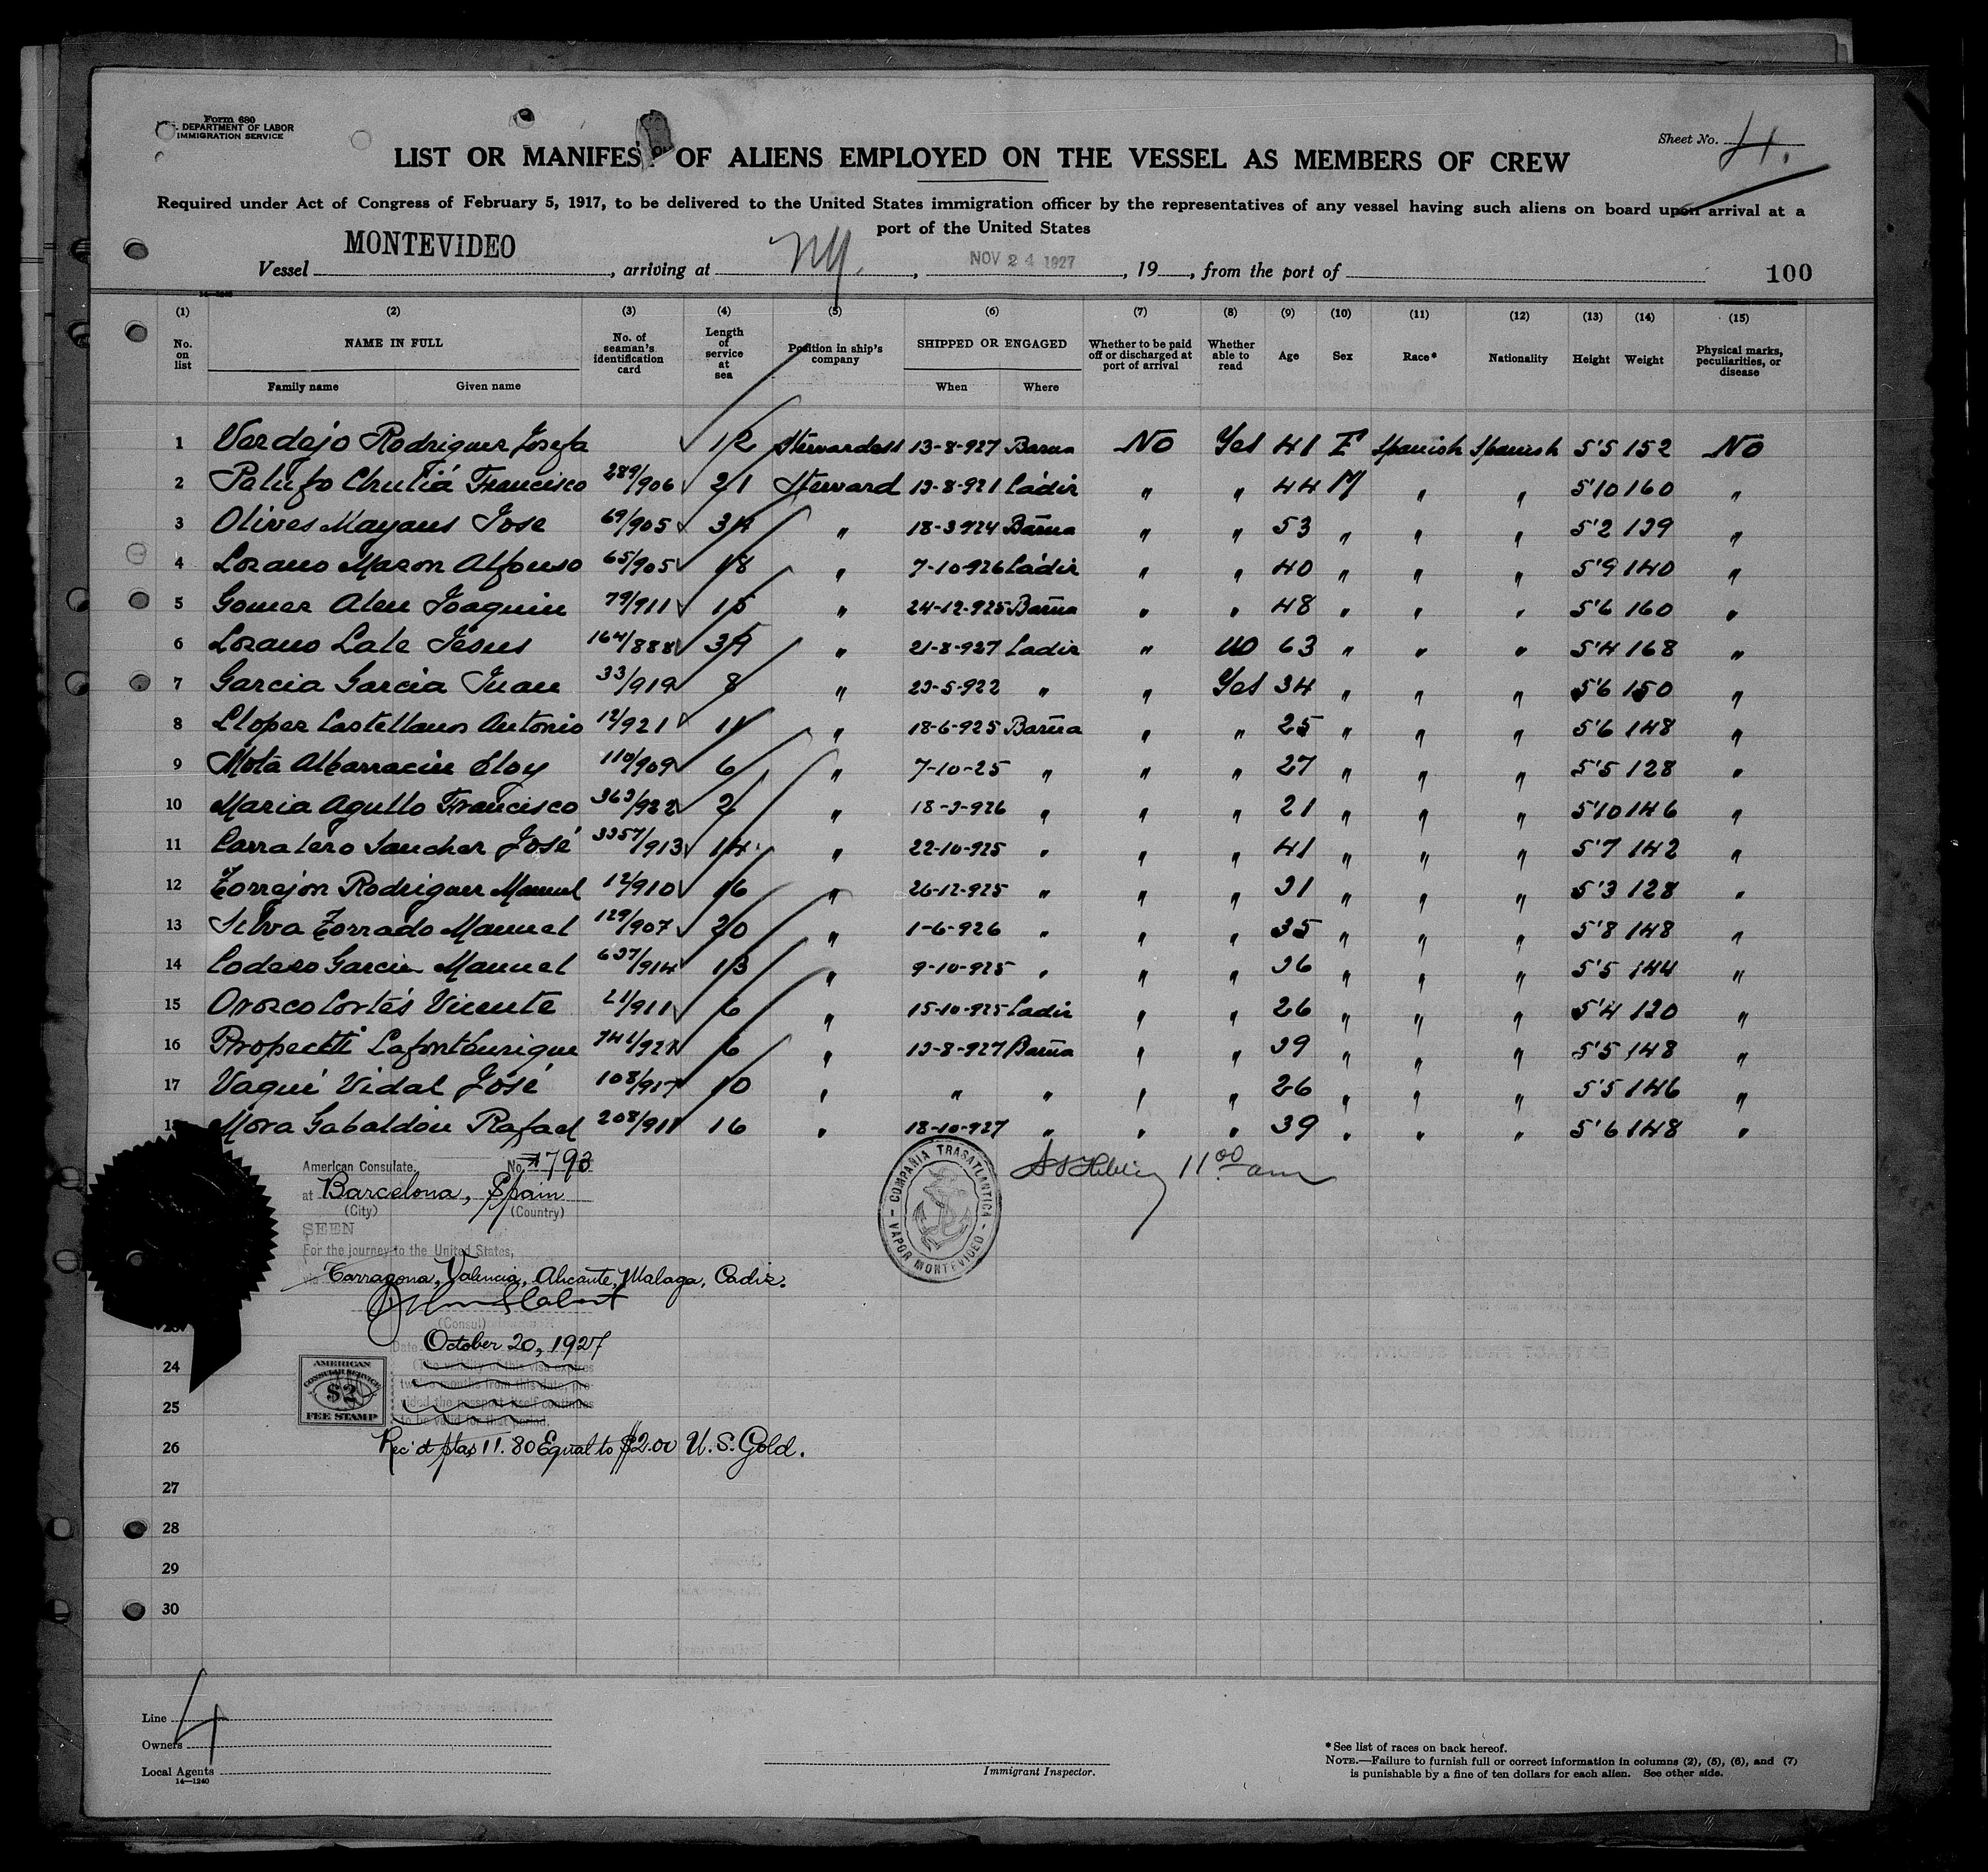 Form 680
DEPARTMENT OF LABOR
IMMIGRATION SERVICE
Sheet No. 4.
LIST OR MANIFES OF ALIENS EMPLOYED ON THE VESSEL AS MEMBERS OF CREW
Required under Act of Congress of February 5, 1917, to be delivered to the United States immigration officer by the representatives of any vessel having such aliens on board upon arrival at a
port of the United States
Vessel MONTEVIDEO, arriving at NY., NOV 24 1927, 19, from the port of
100
(1) (2) (3) (4) (5) (6) (7) (8) (9) (10) (11) (12) (13) (14) (15)
No. on list NAME IN FULL Family name Given name No. of seaman's identification card Length of service at sea Position in ship's company SHIPPED OR ENGAGED When Where Whether to be paid off or discharged at port of arrival Whether able to read Age Sex Race* Nationality Height Weight Physical marks, peculiarities, or disease
1 Verdejo Rodriguez Josefa 12 Stewardess 13-8-927 Barna No Yes 41 F Spanish Spanish 5'5 152 No
2 Palufo Chuliá Francisco 289/906 21 Steward 13-8-921 Cádiz " " 44 M " " 5'10 160 "
3 Olives Mayans Jose 69/905 34 " 18-3-924 Barna " " 53 " " " 5'2 139 "
4 Lozano Mazon Alfonso 65/905 18 " 7-10-926 Cádiz " " 40 " " " 5'9 140 "
5 Gomez Joaquin 79/911 15 " 24-12-925 Barna " " 48 " " " 5'6 160 "
6 Lozano Lale Jesus 164/888 39 " 21-8-927 Cadiz " no 63 " " " 5'4 168 "
7 Garcia Garcia Juan 33/919 8 " 23-5-922 " " Yes 34 " " " 5'6 150 "
8 Lloper Castellanos Antonio 12/921 11 " 18-6-925 Barna " " 25 " " " 5'6 148 "
9 Mota Albarracin Eloy 110/909 6 " 7-10-25 " " " 27 " " " 5'5 128 "
10 Maria Agullo Francisco 363/922 2 " 18-3-926 " " " 21 " " " 5'10 146 "
11 Carratero Sanchez José 3357/913 14 " 22-10-925 " " " 41 " " " 5'7 142 "
12 Torrejon Rodriguez Manuel 12/910 16 " 26-12-925 " " " 31 " " " 5'3 128 "
13 Silva Torrado Manuel 129/907 20 " 1-6-926 " " " 35 " " " 5'8 148 "
14 Codezo Garcia Manuel 637/914 13 " 9-10-925 " " " 36 " " " 5'5 144 "
15 Orozco Cortés Vicente 21/911 6 " 15-10-925 Cadiz " " 26 " " " 5'4 130 "
16 Propecti Lafont Enrique 741/921 6 " 13-8-927 Barna " " 39 " " " 5'5 148 "
17 Vaqué Vidal José 108/917 10 " " " " " 26 " " " 5'5 146 "
18 Mora Gabaldón Rafael 208/911 16 " 18-10-927 " " " 39 " " " 5'6 148 "
American Consulate, No. 1793
at Barcelona, Spain
(City) (Country)
SEEN
For the journey to the United States,
via Tarragona, Valencia, Alicante, Malaga, Cadiz.
(Consul)
Date October 20, 1927
(The validity of this visa expires
months from this date, pro-
vided the passport itself continues
to be valid for that period.
AMERICAN
CONSULAR SERVICE
$2
FEE STAMP
Rec'd ptas 11.80 Equal to $2.00 U.S. Gold.
COMPAÑIA TRASATLANTICA - VAPOR MONTEVIDEO -
11 00 am
24
25
26
27
28
29
30
4
Line
Owners
Local Agents
14—1240
Immigrant Inspector.
* See list of races on back hereof.
NOTE.—Failure to furnish full or correct information in columns (2), (5), (6), and (7)
is punishable by a fine of ten dollars for each alien. See other side.